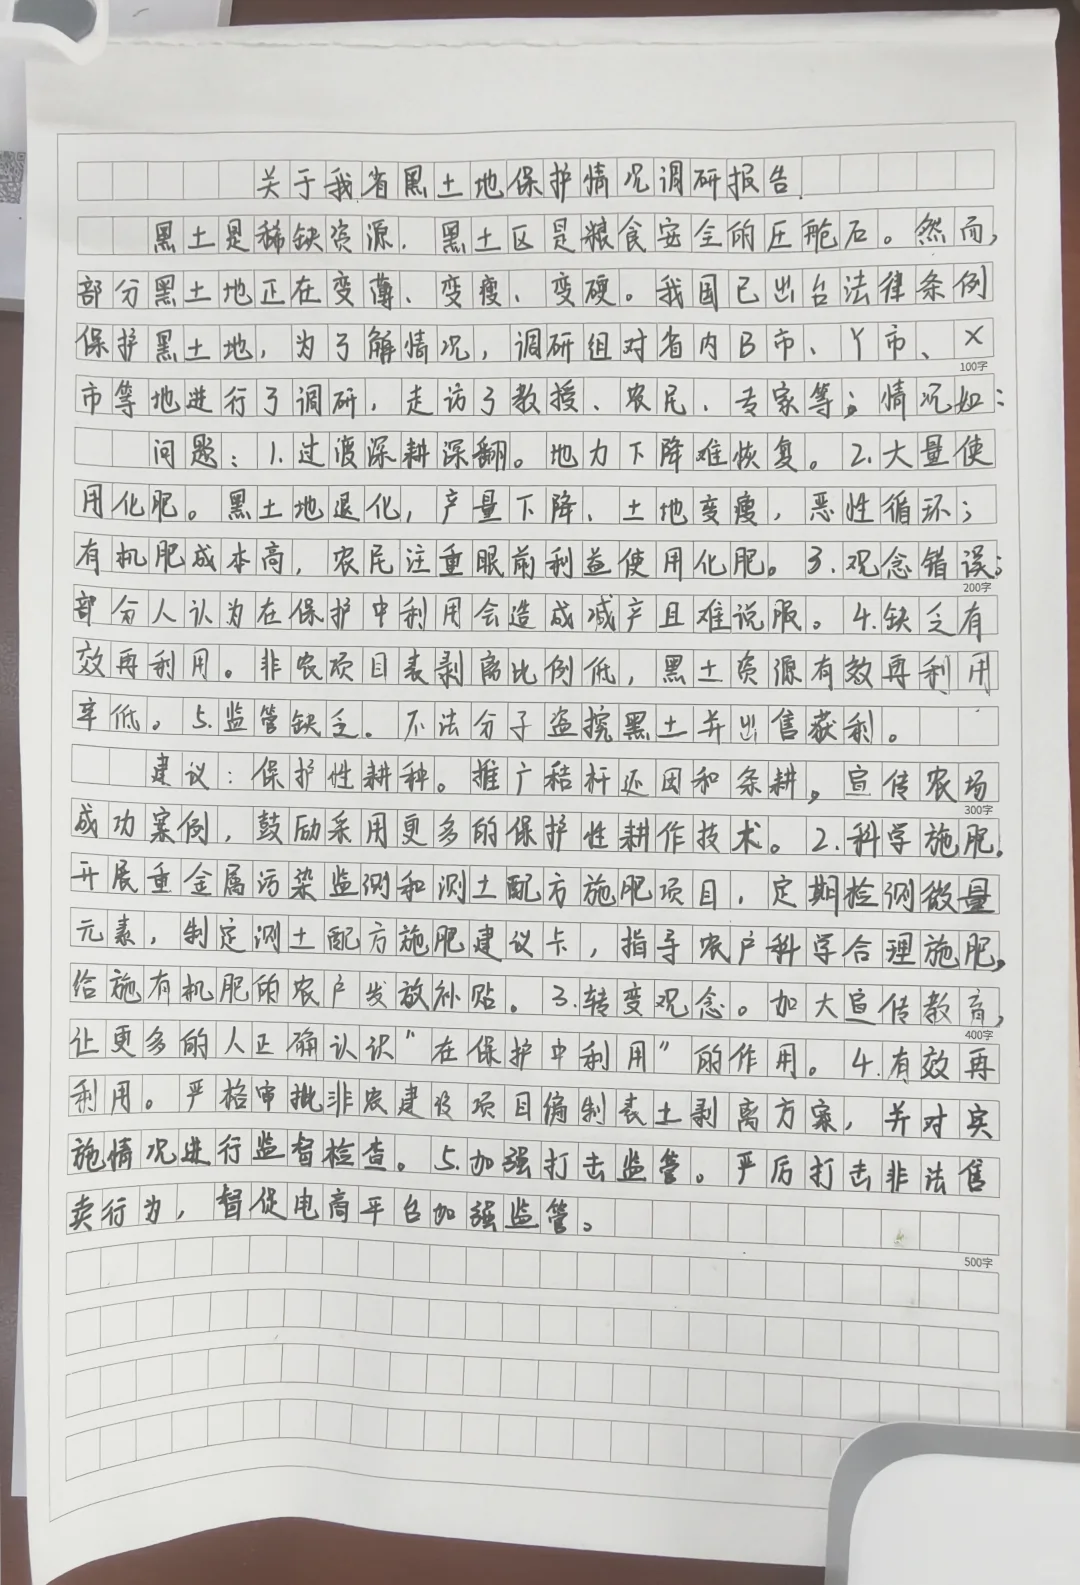 关于我省黑土地保护情况调研报告
黑土是稀缺资源，黑土区是粮食安全的压舱石。然而，
部分黑土地正在变薄、变瘦、变硬。我国已出台法律条例
保护黑土地，为了解情况，调研组对省内B市、Y市、X
100字
市等地进行了调研，走访了教授、农民、专家等；情况如：
问题：1.过渡深耕深翻。地力下降难恢复。2.大量使
用化肥。黑土地退化，产量下降、土地变瘦，恶性循环；
有机肥成本高，农民注重眼前利益使用化肥。3.观念错误；
200字
部分人认为在保护中利用会造成减产且难说服。4.缺乏有
效再利用。非农项目表剥离比例低，黑土资源有效再利用
率低。5.监管缺乏。不法分子盗挖黑土并出售获利。
建议：保护性耕种。推广秸杆还田和条耕。宣传农场
300字
成功案例，鼓励采用更多的保护性耕作技术。2.科学施肥。
开展重金属污染监测和测土配方施肥项目，定期检测微量
元素，制定测土配方施肥建议卡，指导农户科学合理施肥，
给施有机肥的农户发放补贴。3.转变观念。加大宣传教育，
400字
让更多的人正确认识“在保护中利用”的作用。4.有效再
利用。严格审批非农建设项目编制表土剥离方案，并对实
施情况进行监督检查。5.加强打击监管。严厉打击非法售
卖行为，督促电商平台加强监管。
500字